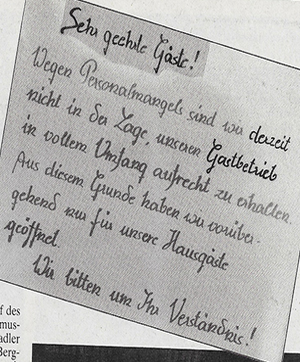 Sehr geehrte Gäste!
Wegen Personalmangels sind wir derzeit
nicht in der Lage, unseren Gastbetrieb
in vollem Umfang aufrecht zu erhalten.
Aus diesem Grunde haben wir vorüber-
gehend nur für unsere Hausgäste
geöffnet.
Wir bitten um Ihr Verständnis!
f des
mus-
adler
Berg-